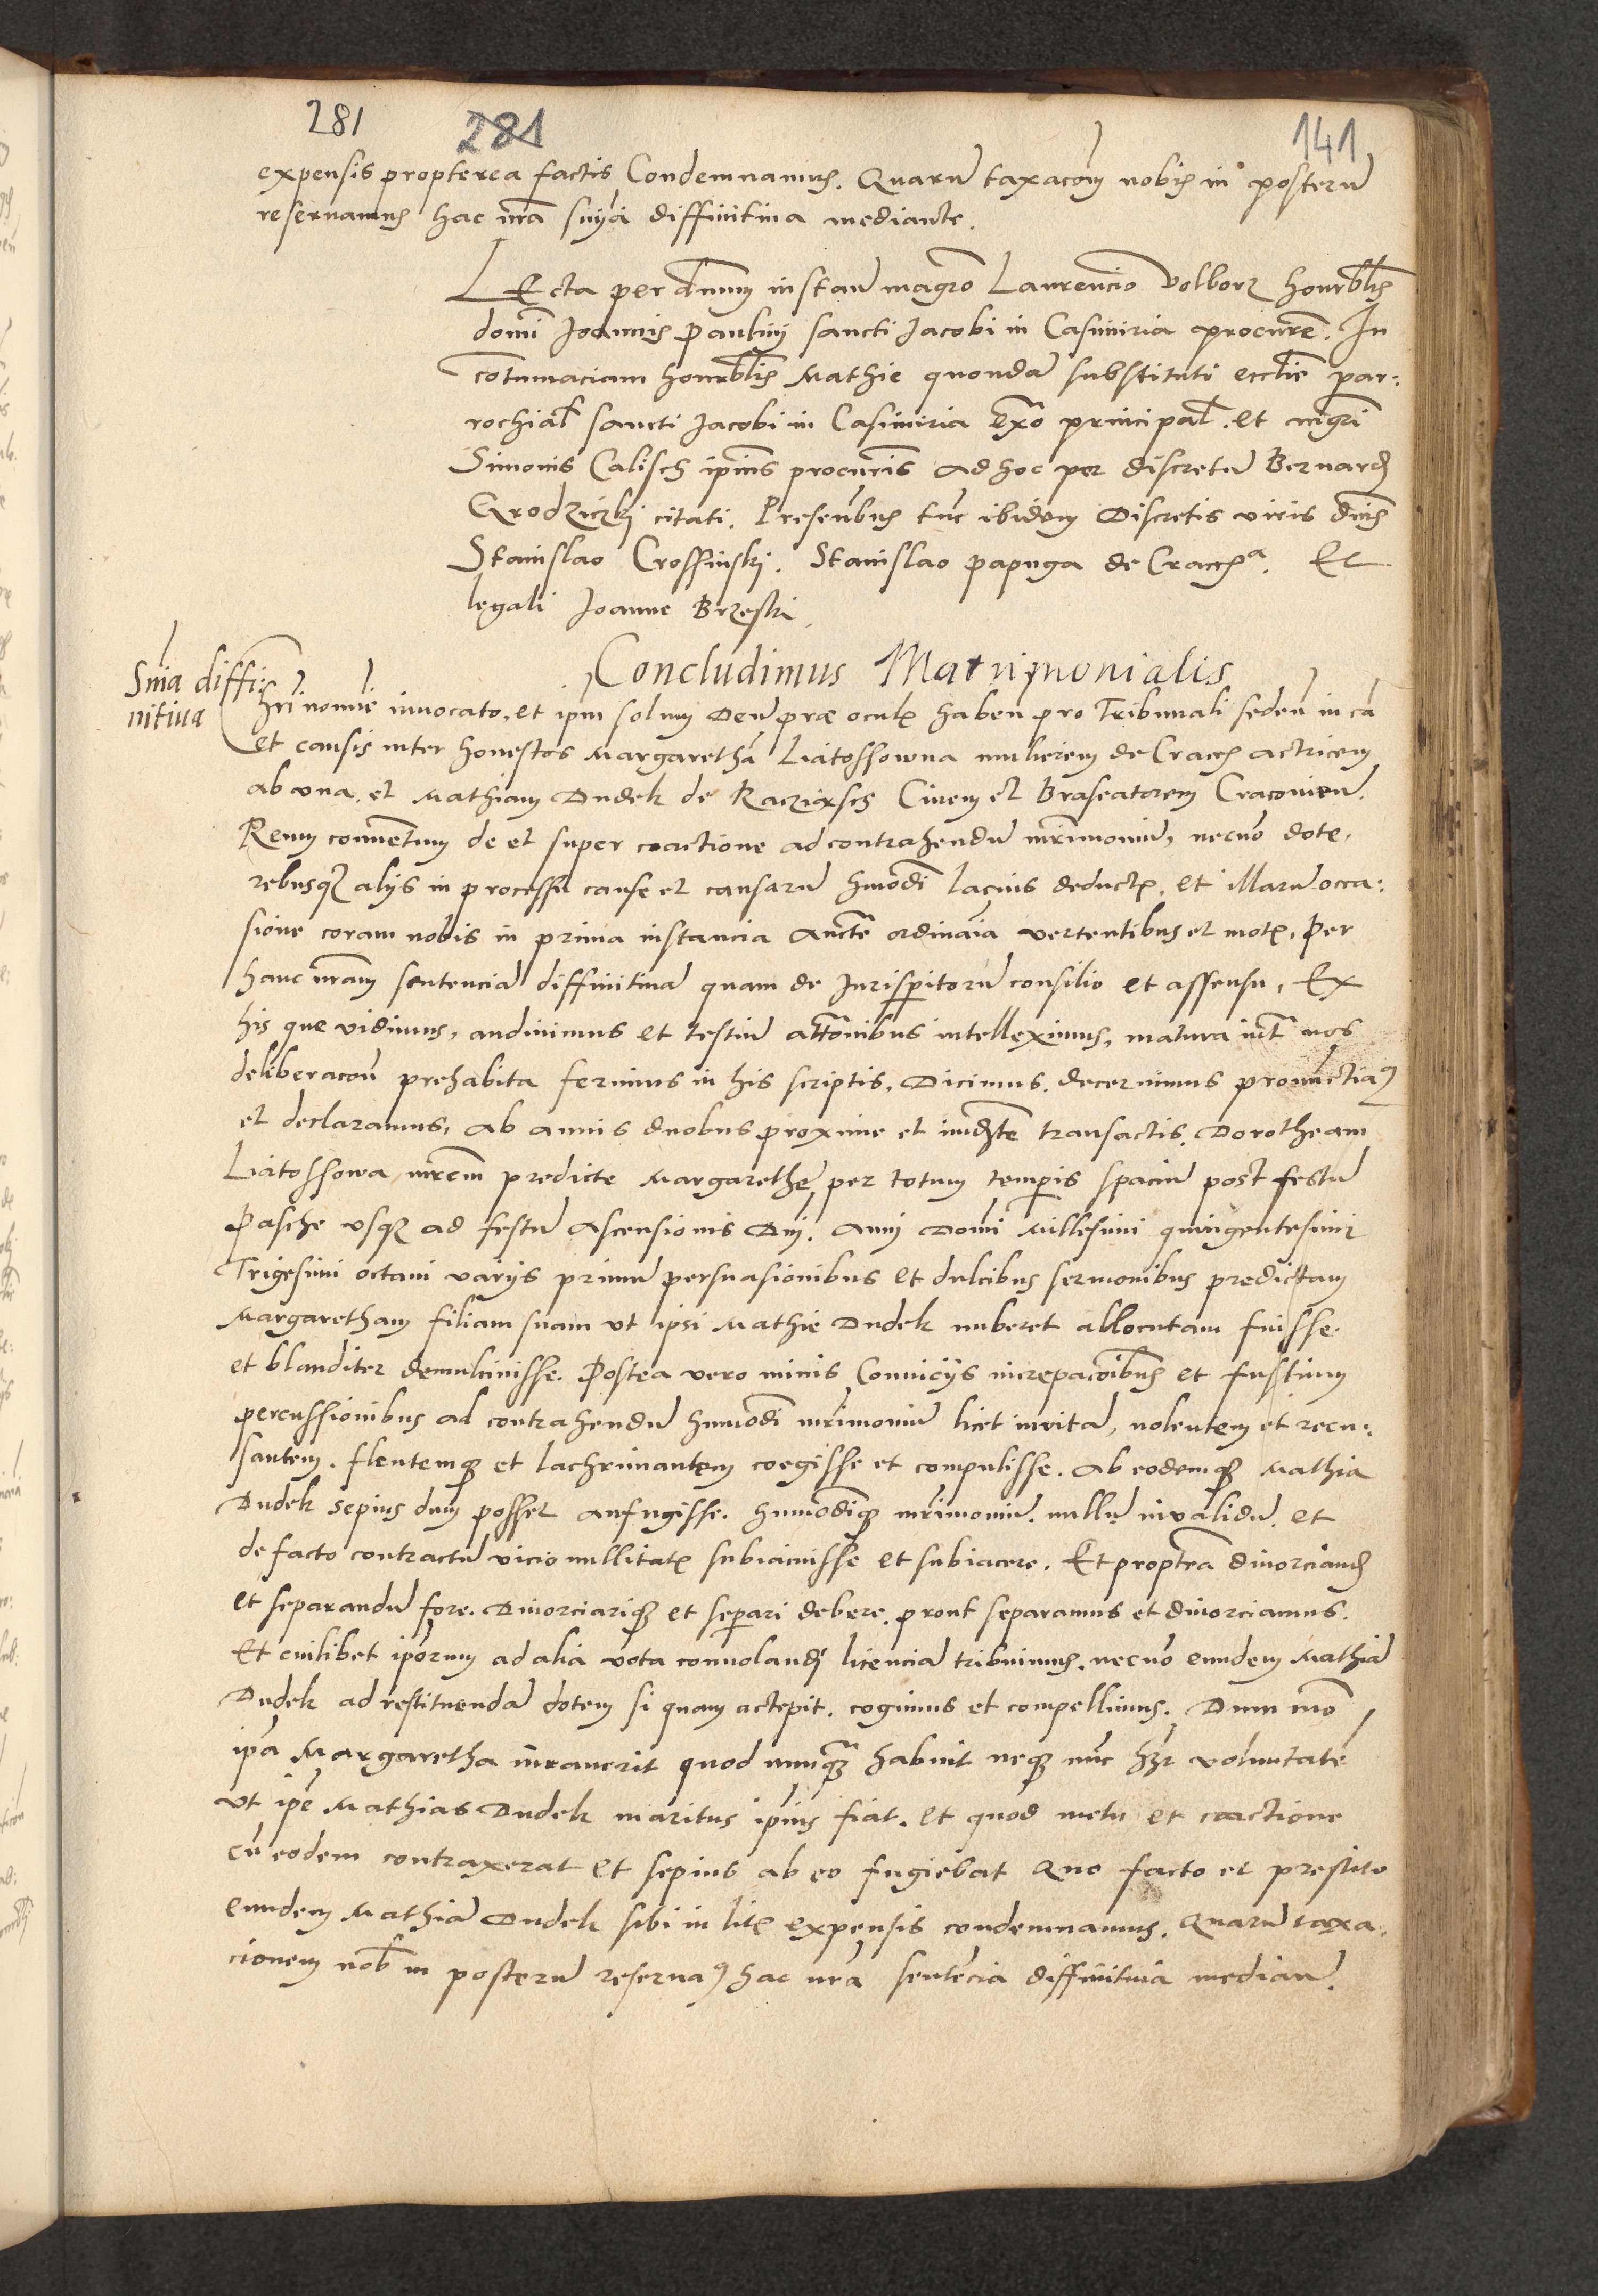 281 281 141
expensis propterea factis Condemnamus. Quarũ taxacõm nobis in posterũ
reseruamus hac nr̃a snĩa diffinitiua mediante.
LEcta per dñum instañ magr̃o Laurencio Dolborz honrblis
domi Joannis Paulini sancti Jacobi in Casimiria procurẽ. In
cõtumaciam honrblis Mathie quondã substituti ecclie par:
rochial sancti Jacobi in Casimiria exño principal. et mgr̃i
Simonis Calisch ipius procuris ad hoc per discretũ Bernard
Grodziczki citati. Presentibus tũc ibidem Discretis viris dñis
Stanislao Crossinski. Stanislao papuga de Cracca. Et
legali Joanne Brzeski.
Concludimus Matrimonialis
Snia diffi:
nitiua
Chri nomĩe inuocato, et ipm solum Deũ præ oculis habeñ pro Tribunali sedeñ in cã
et causis inter honestos Margarethã Liatossowna mulierem de Cracc actricem
ab vna. et Mathiam Dudek de Raziasch Ciuem et Braseatorem Cracouieñ.
Reum conuentum de et super coactione ad contrahendũ mr̃imoniũ, necnõ dote,
rebusq alijs in processu cause et causarũ hmõdi lacius deductis, et illarũ occa:
sione coram nobis in prima instancia Aucte ordinaria vertentibus et motis, Per
hanc nr̃am sentenciã diffinitiuã quam de Jurisperitorũ consilio et assensu, Ex
his que vidimus, audiuimus et testiũ attõnibus intelleximus, matura int nos
deliberacõe prehabita ferimus in his scriptis, Dicimus. decernimus pronũctiam9
et declaramus, Ab annis duobus proxime et imdiate transactis. Dorotheam
Liatossowa mr̃em predicte Margarethe per totum temporis spaciũ post festũ
Pasche vsq ad festũ Ascensionis Dni. Anni Domi Millesimi quingentesimi
Trigesimi octaui varijs primũ persuasionibus et dulcibus sermonibus predictam
Margaretham filiam suam vt ipsi Mathie Dudek nuberet allocutam fuisse.
et blanditer demulsisse. Postea vero minis Conuicijs increpacõibus et fustium
percussionibus ad contrahendũ hmmõdi mr̃imoniũ licet inuitã, nolentem et recu:
santem. flentemq et lachrimantem coegisse et compulisse. Ab eodemq Mathia
Dudek sepius dum posset aufugisse. hmmõdiq mr̃imoniũ. nullũ inualidũ. et
de facto contractũ vicio nullitatis subiacuisse et subiacere. Et propterea diuorciand
et separandũ fore. Diuorciariq et separi debere. prout separamus et diuorciamus.
Et cuilibet ipõrum ad alia vota conuolandi licenciã tribuimus. necnõ eundem Mathiã
Dudek ad restituendã dotem si quam accepit. cogimus et compellimus. Dum mõ
ipa Margaretha iurauerit quod nunq̃ habuit neq nũc hz voluntatẽ
vt ipe Mathias Dudek maritus ipius fiat. et quod metu et coactione
cũ eodem contraxerat et sepius ab eo fugiebat Quo facto et prestito
eundem Mathiã Dudek sibi in litis expensis condemnamus. Quarũ taxa:
cionem nob in posterũ reserua9 hac nr̃a sentẽcia diffinitiua mediañ.